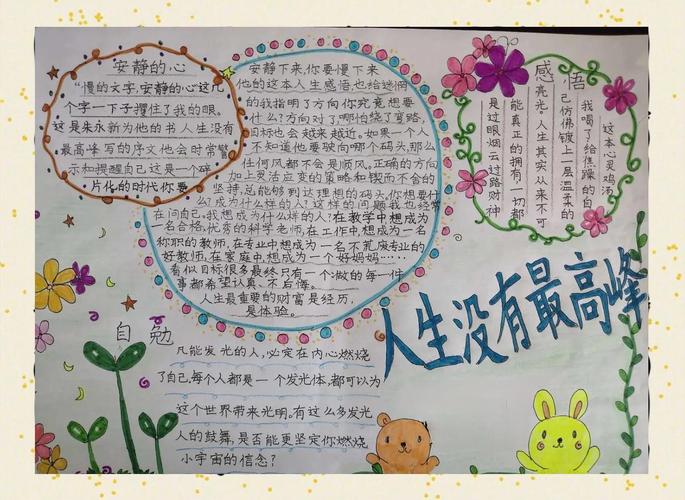 安静的心
“慢的文字,安静的心这几
个字一下子撞住了我的眼。
这是朱永新为他的书人生没有
最高峰写的序文他会时常警
示和提醒自己这是一个碎
片化的时代你要
安静下来,你要慢下来
他的这本人生感悟,也给迷惘
的我指明了方向你究竟想要
什么?方向对了,哪怕绕了弯路,
目标也会越来越近。如果一个人
不知道他要驶向哪个码头,那么
任何风都不会是顺风。正确的方向
加上灵活应变的策略和锲而不舍的
坚持,总能够到达理想的码头,你想要什
么?成为什么样的人?这样的问题我也经常
在问自己。我想成为什么样的人?在教学中想成为
一名合格,优秀的科学老师,在工作中,想成为一名
称职的教师,在专业中想成为一名不荒废专业的
好教师,在家庭中想成为一个好妈妈……
看似目标很多最终只有一个:做的每一件
事都希望认真、不后悔。
人生最重要的财富是经历,
是体验。
感悟
这本心灵鸡汤
我喝了给焦躁的自
己仿佛镀上一层温柔的
亮光。人生其实从来不可
能真正的拥有一切都
是过眼烟云过路财神
人生没有最高峰
自勉
凡能发光的人,必定在内心燃烧
了自己,每个人都是一个发光体,都可以为
这个世界带来光明。有这么多发光
人的鼓舞,是否能更坚定你燃烧
小宇宙的信念?